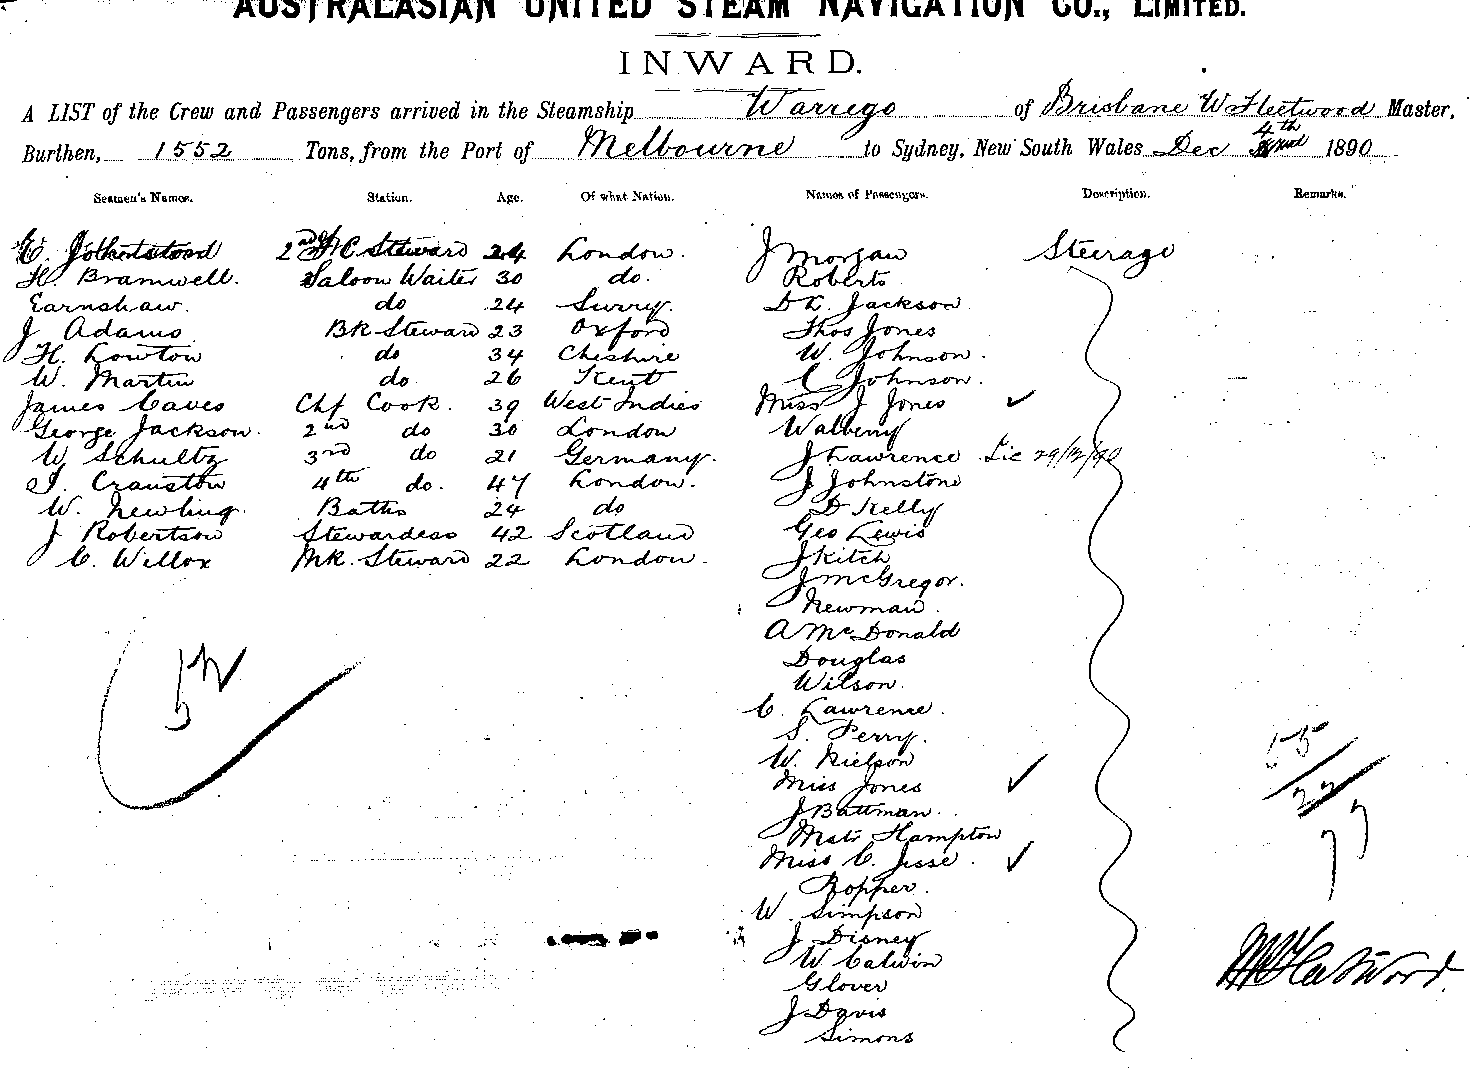 AUSTRALASIAN UNITED STEAM NAVIGATION CO., LIMITED.
INWARD.
A LIST of the Crew and Passengers arrived in the Steamship Warrego of Brisbane W Fleetwood Master,
Burthen, 1552 Tons, from the Port of Melbourne to Sydney, New South Wales Dec 4th 1890
Seamen's Names. Station. Age. Of what Nation. Names of Passengers. Description. Remarks.
2nd Steward 24 London. J Morgan Steerage
H. Bramwell. Saloon Waiter 30 do. Roberts
Earnshaw. do 24 Surry. Jackson
J Adams BR Steward 23 Oxford Thos Jones
H. Lowton do 34 Cheshire W. Johnson.
W. Martin do 26 Kent C Johnson.
James Caves Chf Cook. 39 West Indies Miss J Jones
George Jackson. 2nd do 30 London
W Schultz 3rd do 21 Germany. J Lawrence Lic 29/12/90
Cranston 4th do. 47 London. J Johnstone
W. Newling. Baths 24 do D Kelly
J Robertson Stewardess 42 Scotland Geo Lewis
C. Willox MR. Steward 22 London. J Kitch
J McGregor.
Newman.
A McDonald
Douglas
52 Wilson.
C. Lawrence.
S. Perry.
W. Nielson
Miss Jones
55
J Battman.
22
Hampton
77
Miss C. Jesse.
Bopper.
W. Simpson
J Disney
W Calwin
W Fleetwood
Glover
J Davis
Simons